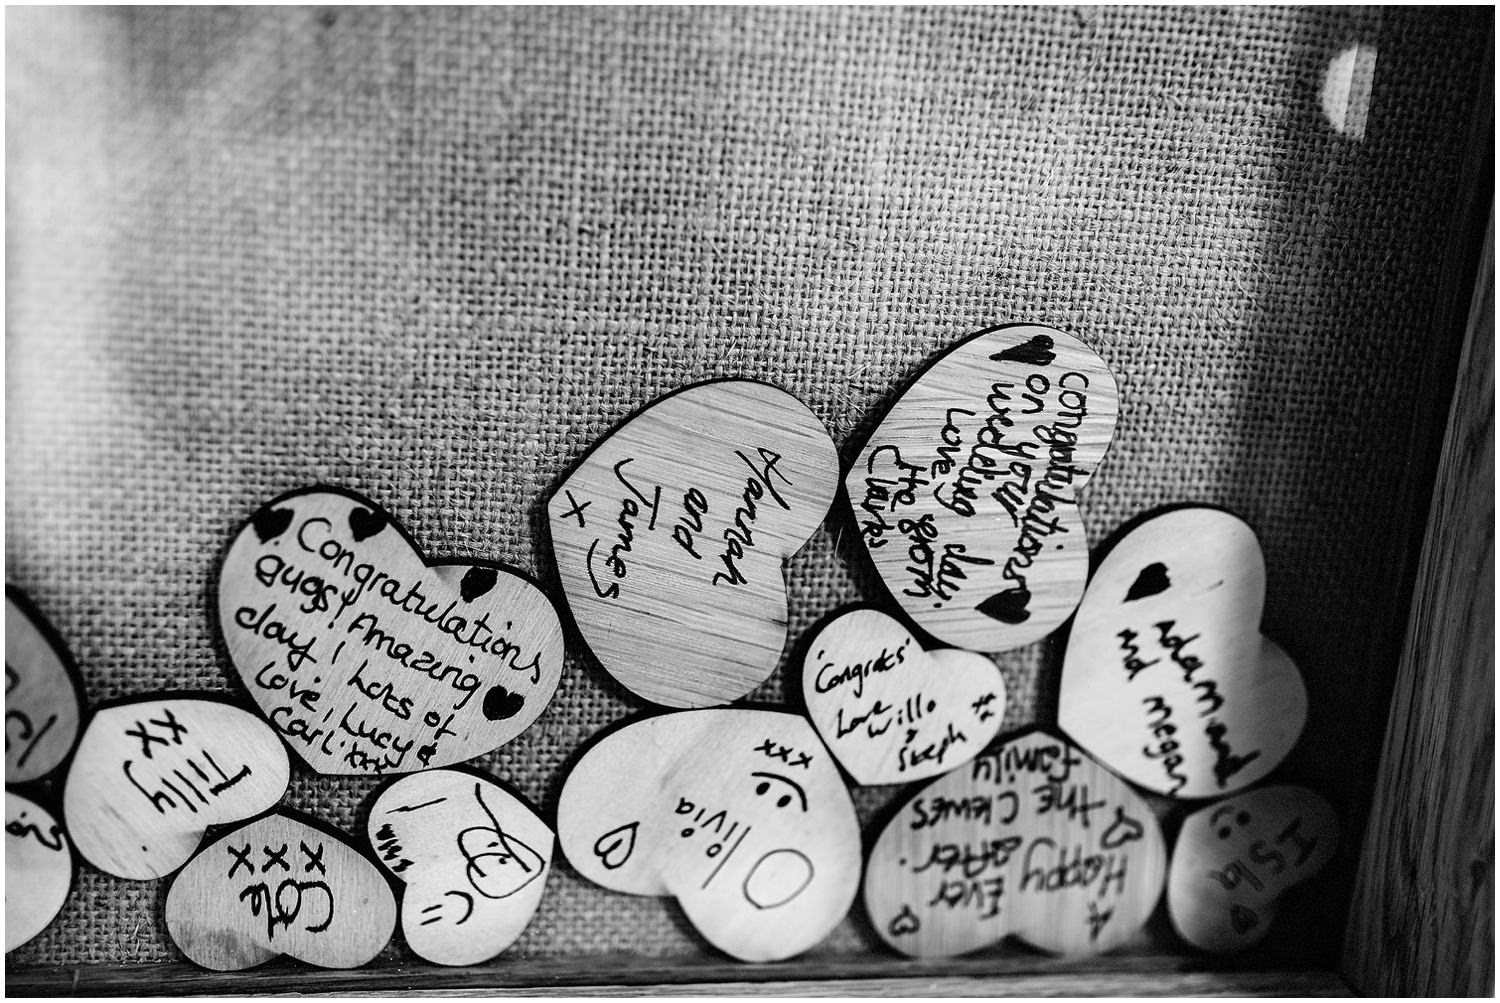 Congratulations
guys! Amazing
day! Lots of
Love, Lucy &
Carl xxx
Hannah
and
James
x
Congratulations
on your
wedding day.
Love
the
Clarks
'Congrats'
Love
Will
&
Steph
xx
Adam and
and megan
Tilly
xx
xxx
Olivia
xxx
A
Happy
Ever
after.
The Clewes
family
Isla
:)